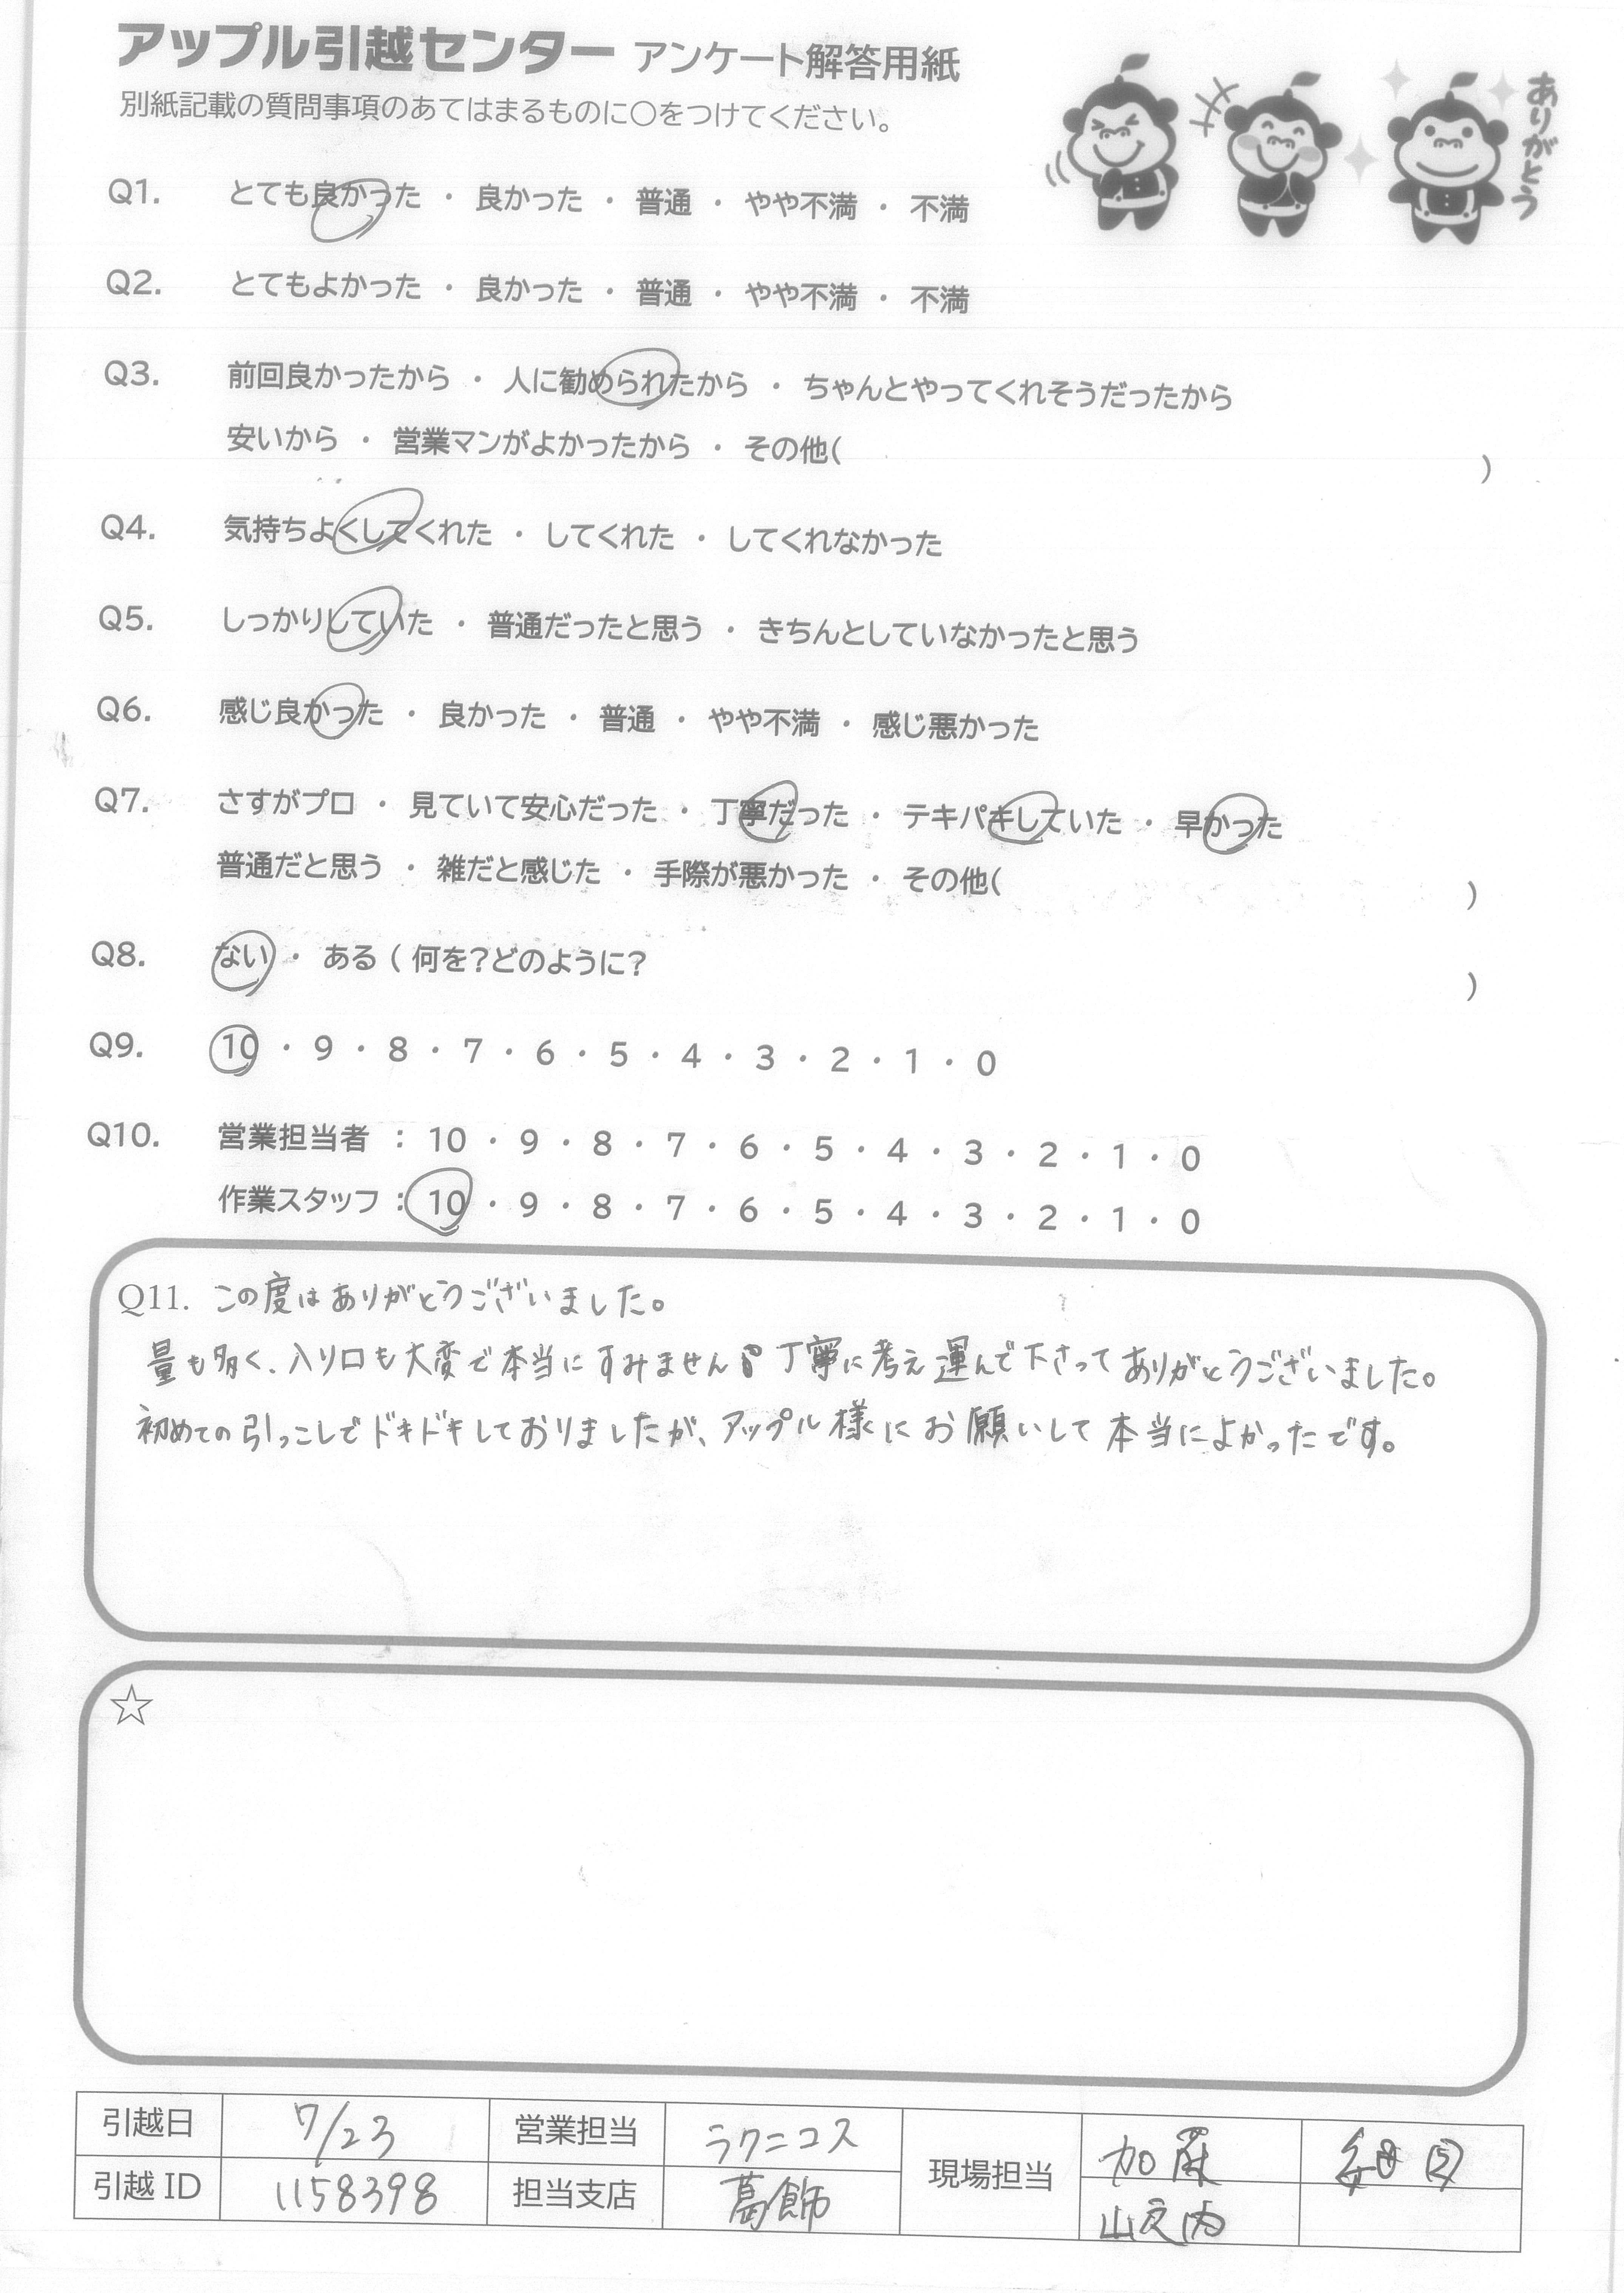 アップル引越センター アンケート解答用紙
別紙記載の質問事項のあてはまるものに○をつけてください。
ありがとう
Q1. とても良かった ・ 良かった ・ 普通 ・ やや不満 ・ 不満
Q2. とてもよかった ・ 良かった ・ 普通 ・ やや不満 ・ 不満
Q3. 前回良かったから ・ 人に勧められたから ・ ちゃんとやってくれそうだったから
安いから ・ 営業マンがよかったから ・ その他( )
Q4. 気持ちよくしてくれた ・ してくれた ・ してくれなかった
Q5. しっかりしていた ・ 普通だったと思う ・ きちんとしていなかったと思う
Q6. 感じ良かった ・ 良かった ・ 普通 ・ やや不満 ・ 感じ悪かった
Q7. さすがプロ ・ 見ていて安心だった ・ 丁寧だった ・ テキパキしていた ・ 早かった
普通だと思う ・ 雑だと感じた ・ 手際が悪かった ・ その他( )
Q8. ない ・ ある ( 何を?どのように? )
Q9. 10 ・ 9 ・ 8 ・ 7 ・ 6 ・ 5 ・ 4 ・ 3 ・ 2 ・ 1 ・ 0
Q10. 営業担当者 : 10 ・ 9 ・ 8 ・ 7 ・ 6 ・ 5 ・ 4 ・ 3 ・ 2 ・ 1 ・ 0
作業スタッフ : 10 ・ 9 ・ 8 ・ 7 ・ 6 ・ 5 ・ 4 ・ 3 ・ 2 ・ 1 ・ 0
Q11. この度はありがとうございました。
量も多く、入り口も大変で本当にすみません 丁寧に考え運んで下さってありがとうございました。
初めての引っこしでドキドキしておりましたが、アップル様にお願いして本当によかったです。
☆
引越日 7/23 営業担当 ラクニコス 現場担当 加藤
引越 ID 1158398 担当支店 葛飾 山之内